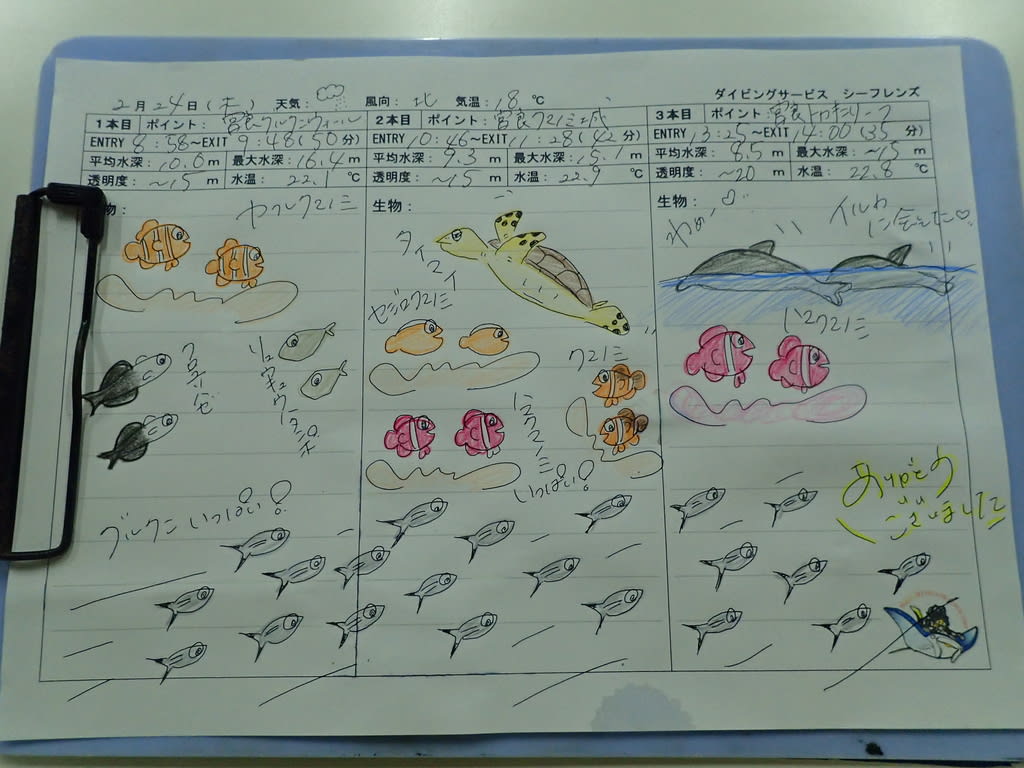 ダイビングサービス シーフレンズ
2月24日(木) 天気: 風向: 北 気温: 18℃
1本目 ポイント: 宮良グルクンウォール
ENTRY 8:58～EXIT 9:48(50分)
平均水深: 10.6m 最大水深: 16.4m
透明度: ~15m 水温: 22.1℃
物:
ヤフレクマノミ
クロハゼ
ブルクン いっぱい!
2本目 ポイント: 宮良クマノミ城
ENTRY 10:46～EXIT 11:28(42分)
平均水深: 9.3m 最大水深: 15.1m
透明度: ~15m 水温: 22.9℃
生物:
タイマイ
セジロクマノミ
クマノミ
ハマクマノミ
いっぱい!
3本目 ポイント: 宮良トロッキリーフ
ENTRY 13:25～EXIT 14:00(35分)
平均水深: 8.5m 最大水深: ~15m
透明度: ~20m 水温: 22.8℃
生物:
イルカ
に会えた♡
ハマクマノミ
ありがとう
ございました